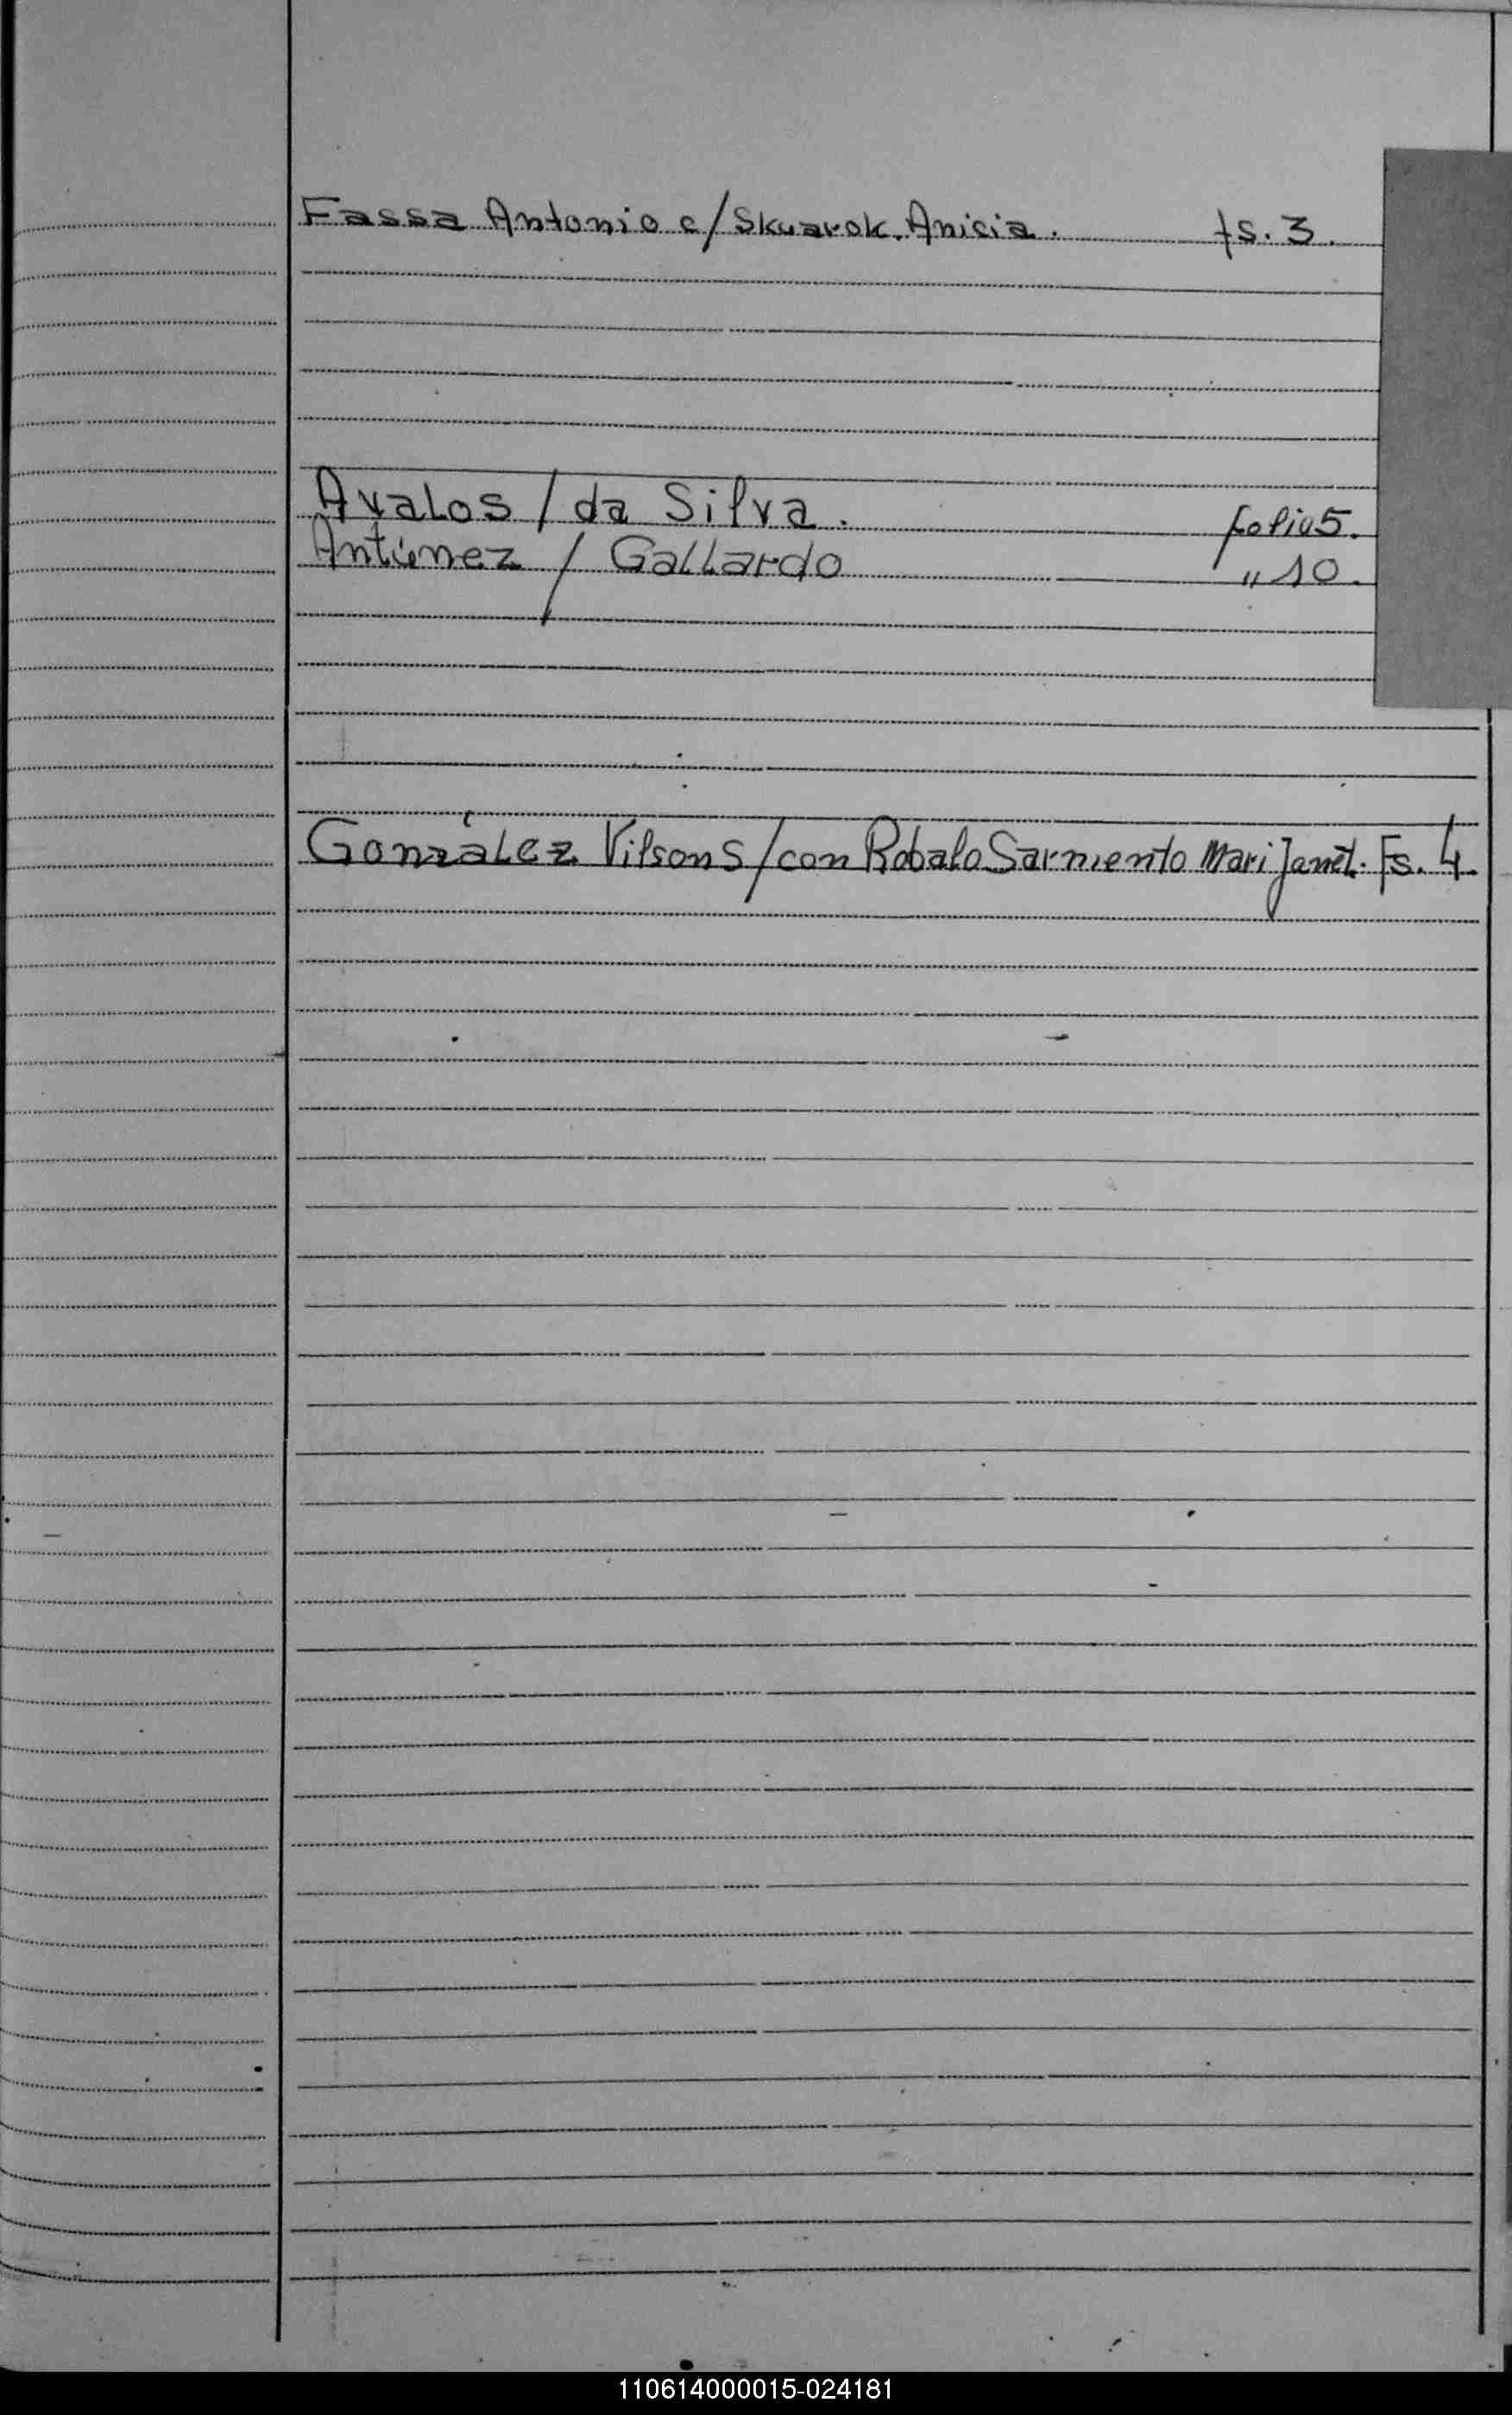 Fassa Antonio c/Skuarok Anicia. fs. 3.
Avalos / da Silva. folio 5.
Antúnez / Gallardo " 10.
González Vilson S/con Robalo Sarmiento Mari Janet. Fs. 4.
110614000015-024181